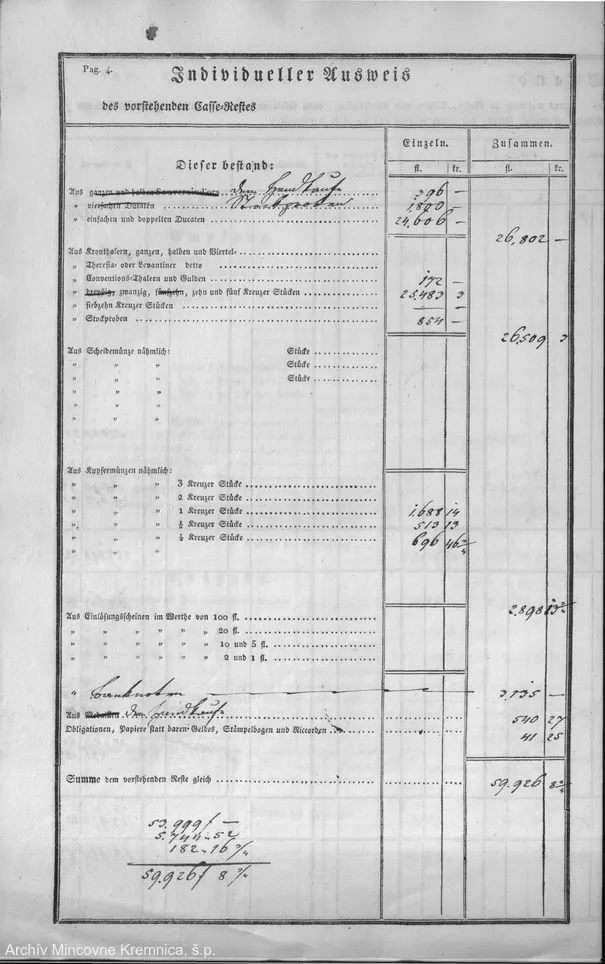 Pag. 4.
Individueller Ausweis
des vorstehenden Casse-Restes
Einzeln. Zusammen.
Dieser bestand: fl. kr. fl. kr.
Aus ganzen und halben Souveraind'ors dem Handkaufe 396 —
„ vierfachen Ducaten Stockproben 1,800 —
„ einfachen und doppelten Ducaten 24,606 —
26,802 —
Aus Kronthalern, ganzen, halben und Viertel-
„ Theresia- oder Levantiner detto
„ Conventions-Thalern und Gulden 172 —
„ dreyßig, zwanzig, fünfzehn, zehn und fünf Kreuzer Stücken 25.483 3
„ siebzehn Kreuzer Stücken —
„ Stockproben 854 —
26,509 3
Aus Scheidemünze nähmlich: Stücke
„ „ „ Stücke
„ „ „ Stücke
„ „ „
„ „ „
„ „ „
Aus Kupfermünzen nähmlich:
„ „ „ 3 Kreuzer Stücke
„ „ „ 2 Kreuzer Stücke
„ „ „ 1 Kreuzer Stücke 1.688 14
„ „ „ ½ Kreuzer Stücke 513 13
„ „ „ ¼ Kreuzer Stücke 696 46 2/4
„ „ „
2.898 13 2/4
Aus Einlösungsscheinen im Werthe von 100 fl.
„ „ „ „ „ 20 fl.
„ „ „ „ „ 10 und 5 fl.
„ „ „ „ „ 2 und 1 fl.
„ Banknoten 3.135 —
Aus Medaillen dem Handkaufe 540 27
Obligationen, Papiere statt baren Geldes, Stämpelbogen und Riccorden 41 25
Summe dem vorstehenden Reste gleich 59.926 8 2/4
53.999 f —
5.744 „ 52
182 „ 16 2/4
59.926 f 8 2/4
Archív Mincovne Kremnica, š.p.